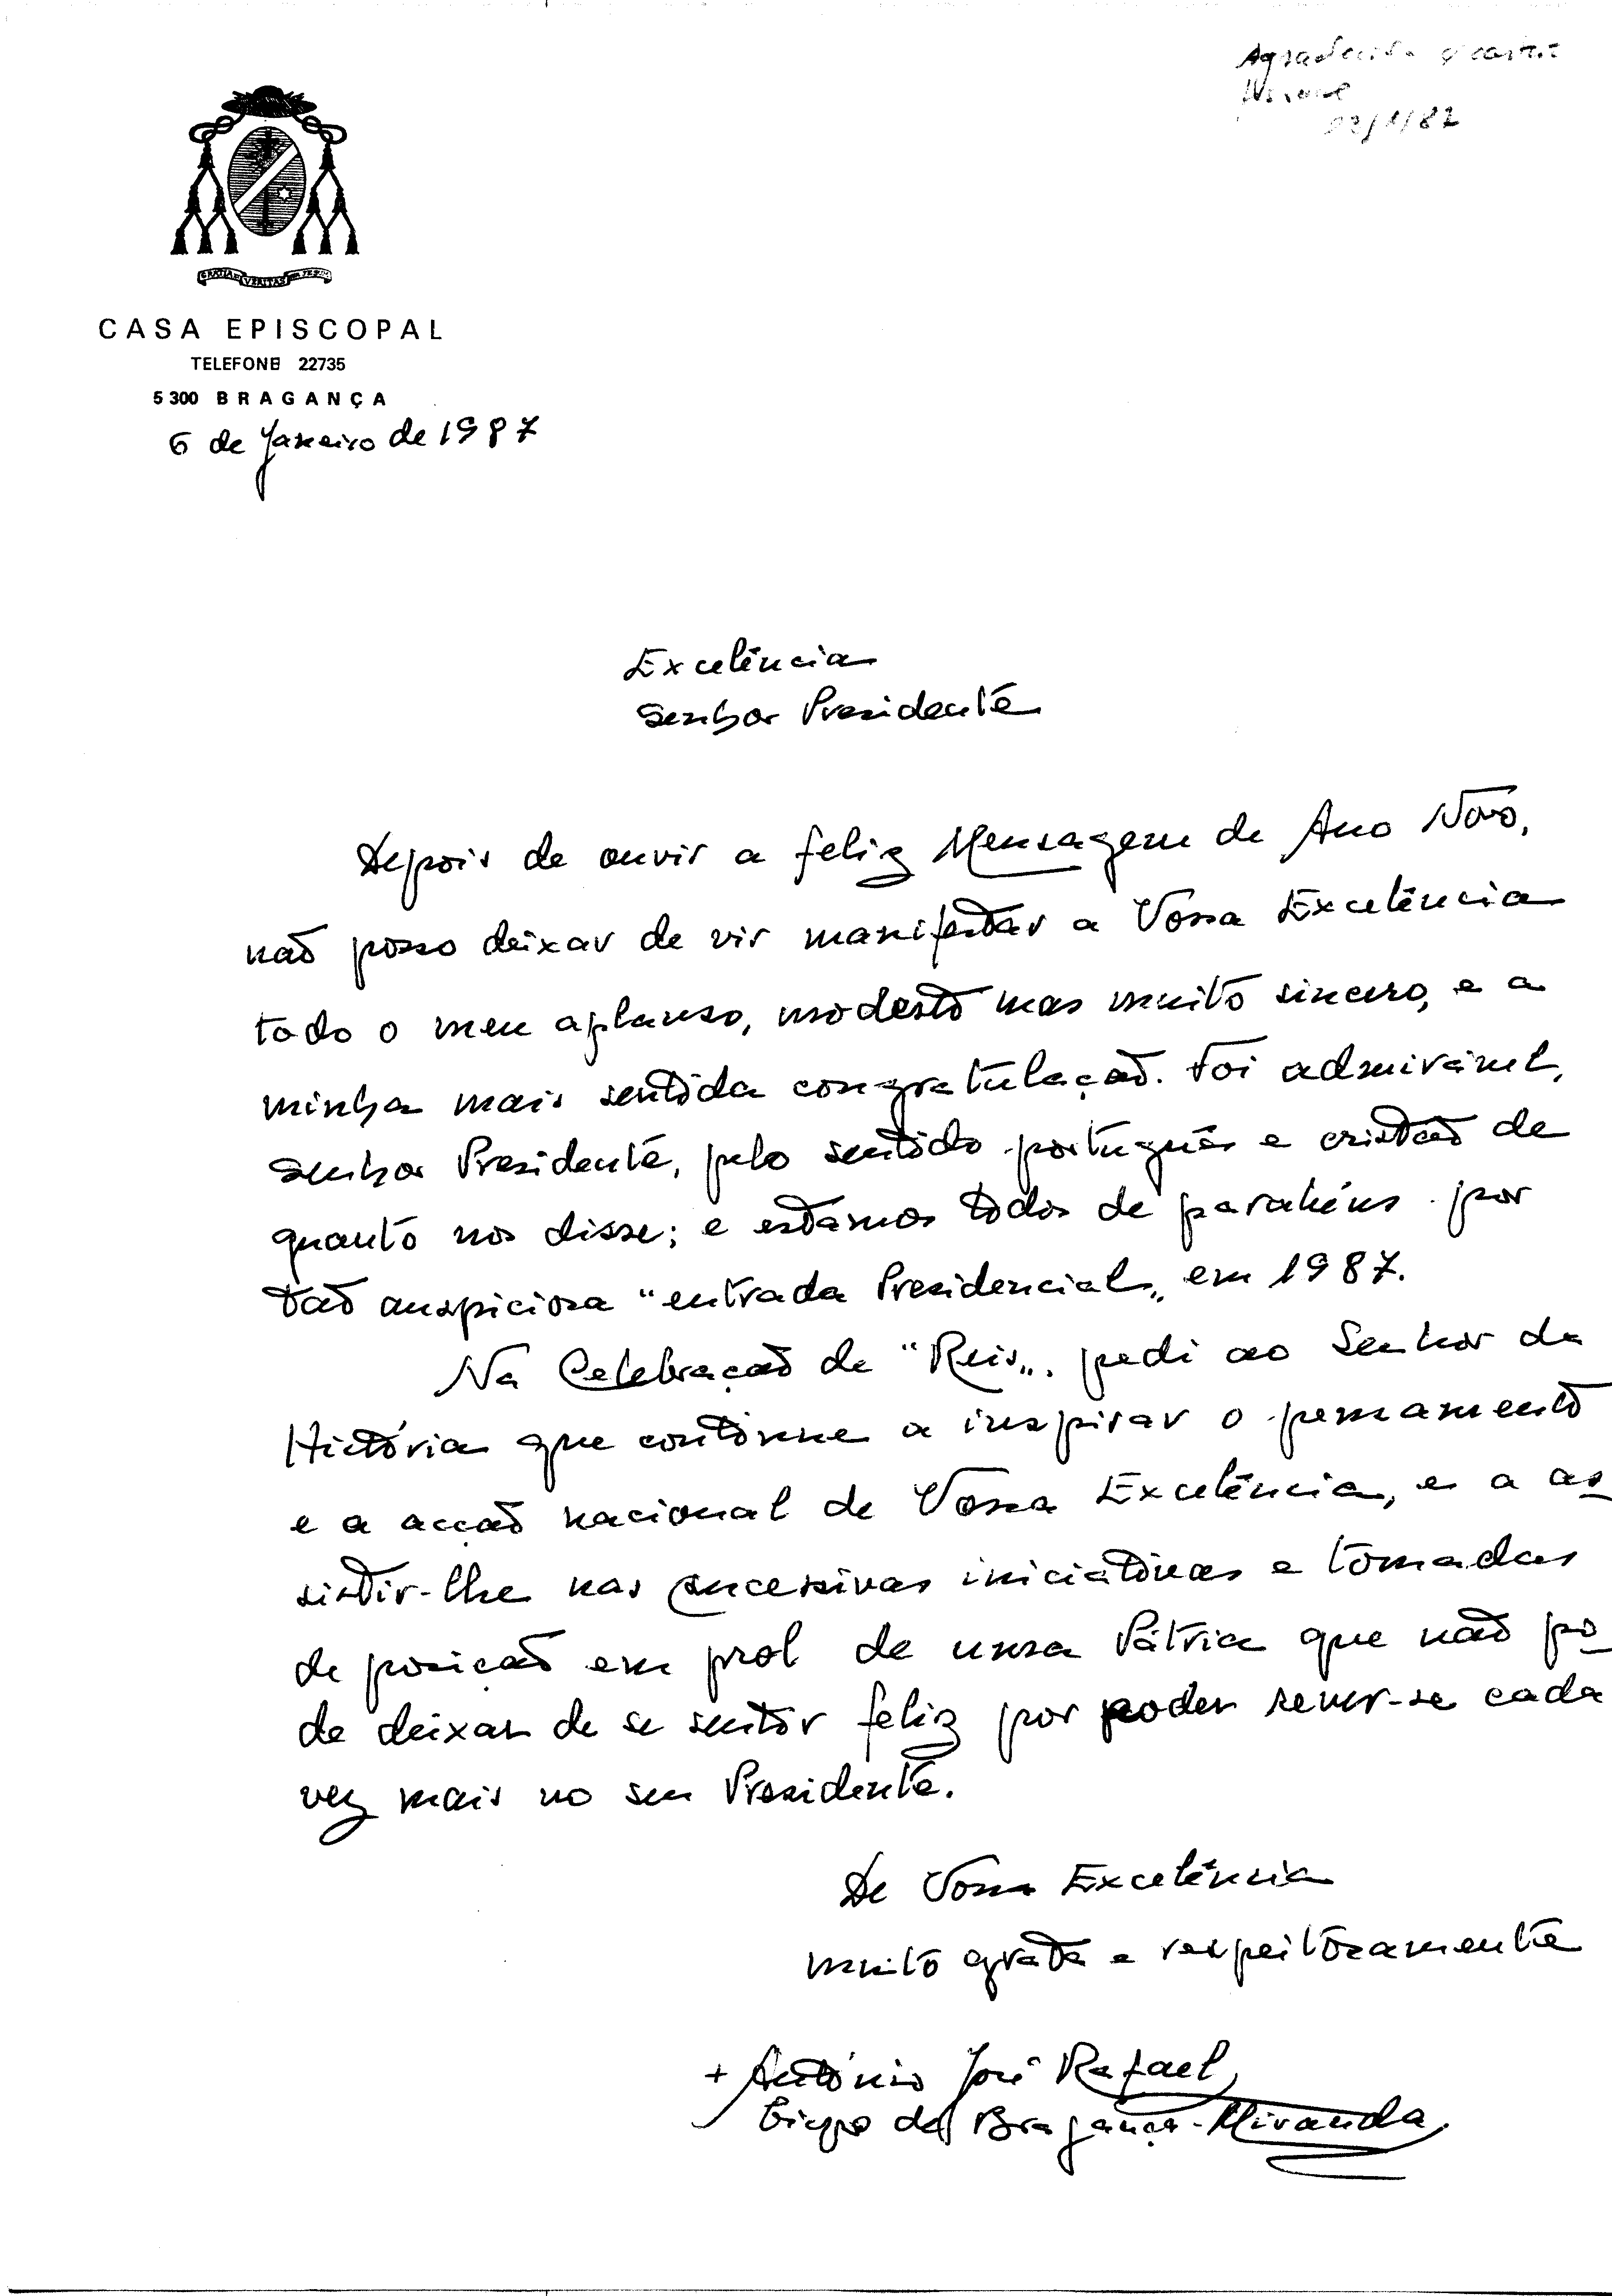 Agradecida
/1/87
VERITAS
CASA EPISCOPAL
TELEFONE 22735
5300 BRAGANÇA
6 de Janeiro de 1987
Excelência
Senhor Presidente
Depois de ouvir a feliz Mensagem de Ano Novo,
não posso deixar de vir manifestar a Vossa Excelência
todo o meu aplauso, modesto mas muito sincero, e a
minha mais sentida congratulação. Foi admirável,
Senhor Presidente, pelo sentido português e cristão de
quanto nos disse; e estamos todos de parabéns por
tão auspiciosa "entrada Presidencial„ em 1987.
Na Celebração de "Reis„, pedi ao Senhor da
História que continue a inspirar o pensamento
e a acção nacional de Vossa Excelência, e a as-
sistir-lhe nas sucessivas iniciativas e tomadas
de posição em prol de nossa Pátria que não po-
de deixar de se sentir feliz por poder rever-se cada
vez mais no seu Presidente.
De Vossa Excelência
muito grata e respeitosamente
+ António José Rafael,
Bispo de Bragança-Miranda